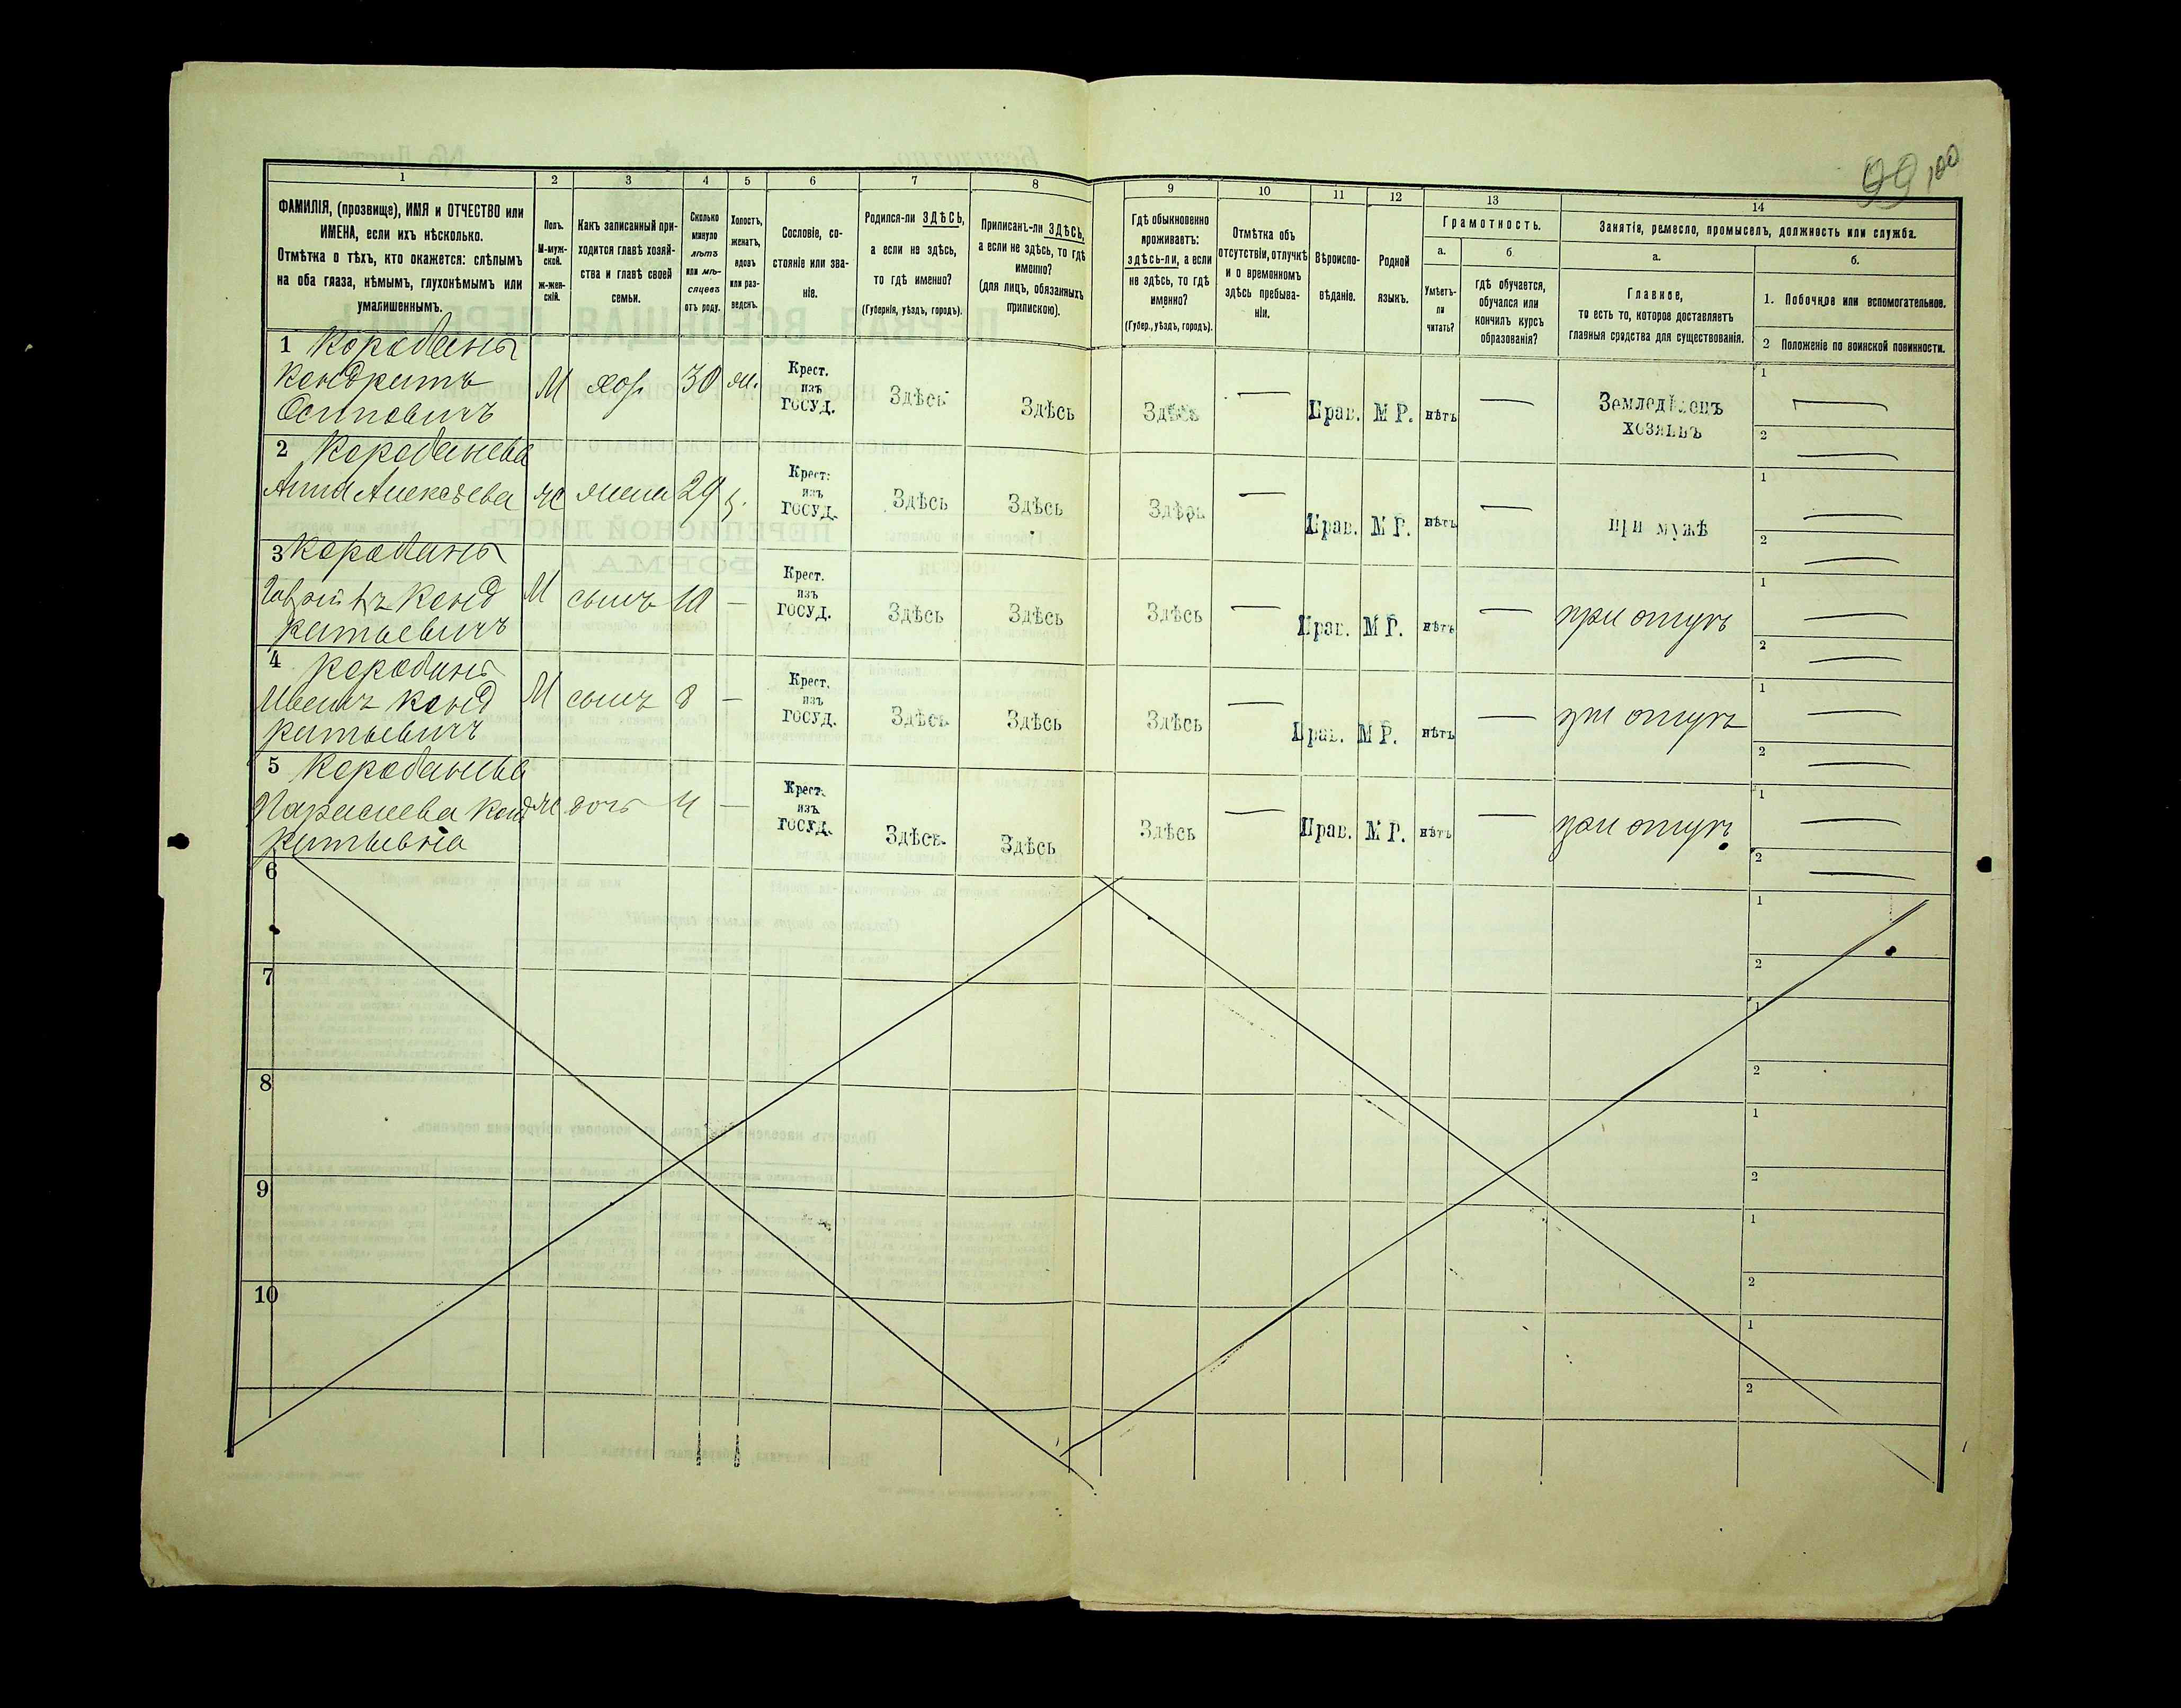 99 100
1 2 3 4 5 6 7 8 9 10 11 12 13 14
ФАМИЛІЯ, (прозвище), ИМЯ и ОТЧЕСТВО или
ИМЕНА, если ихъ нѣсколько.
Отмѣтка о тѣхъ, кто окажется: слѣпымъ
на оба глаза, нѣмымъ, глухонѣмымъ или
умалишеннымъ.
Полъ.
М-муж-
ской.
ж-жен-
скій.
Какъ записанный при-
ходится главѣ хозяй-
ства и главѣ своей
семьи.
Сколько
минуло
лѣтъ
или мѣ-
сяцевъ
отъ роду.
Холостъ,
женатъ,
вдовъ
или раз-
веденъ.
Сословіе, со-
стояніе или зва-
ніе.
Родился-ли ЗДѢСЬ,
а если не здѣсь,
то гдѣ именно?
(Губернія, уѣздъ, городъ).
Приписанъ-ли ЗДѢСЬ,
а если не здѣсь, то гдѣ
именно?
(для лицъ, обязанныхъ
припискою).
Гдѣ обыкновенно
проживаетъ:
здѣсь-ли, а если
не здѣсь, то гдѣ
именно?
(Губер., уѣздъ, городъ).
Отмѣтка объ
отсутствіи, отлучкѣ
и о временномъ
здѣсь пребыва-
ніи.
Вѣроиспо-
вѣданіе.
Родной
языкъ.
Грамотность.
а.
Умѣетъ-
ли
читать?
б.
гдѣ обучается,
обучался или
кончилъ курсъ
образованія?
Занятія, ремесло, промыселъ, должность или служба.
а.
Главное,
то есть то, которое доставляетъ
главныя средства для существованія.
б.
1. Побочное или вспомогательное.
2 Положеніе по воинской повинности.
1 Коробань
Кондратъ
Осиповичъ
М хоз. 30 ж.
Крест.
изъ
ГОСУД.
Здѣсь Здѣсь Здѣсь — Прав. М Р. нѣтъ —
Земледѣлецъ
хозяинъ
1 —
2 —
2 Коробанева
Анна Алексѣева
Ж жена 29 з.
Крест.
изъ
ГОСУД.
Здѣсь Здѣсь Здѣсь — Прав. М Р. нѣтъ — при мужѣ
1 —
2 —
3 Коробань
Конд
ратьевичъ
М сынъ 10 —
Крест.
изъ
ГОСУД.
Здѣсь Здѣсь Здѣсь — Прав. М Р. нѣтъ — при отцѣ
1 —
2 —
4 Коробань
Иванъ Конд
ратьевичъ
М сынъ 8 —
Крест.
изъ
ГОСУД.
Здѣсь Здѣсь Здѣсь — Прав. М Р. нѣтъ — при отцѣ
1 —
2 —
5 Коробанева
Параскева Конд
ратьевна
Ж дочь 4 —
Крест.
изъ
ГОСУД.
Здѣсь Здѣсь Здѣсь — Прав. М Р. нѣтъ — при отцѣ
1 —
2 —
6
1
2
7
1
2
8
1
2
9
1
2
10
1
2